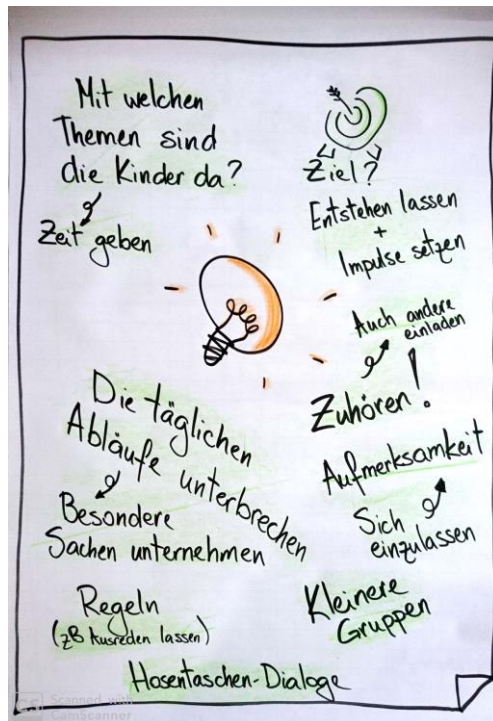 Mit welchen
Themen sind
die Kinder da?
Zeit geben
Ziel?
Entstehen lassen
+
Impulse setzen
Auch andere
einladen
Zuhören!
Aufmerksamkeit
Sich
einzulassen
Die täglichen
Abläufe unterbrechen
Besondere
Sachen unternehmen
Kleinere
Gruppen
Regeln
(zB Ausreden lassen)
Hosentaschen-Dialoge
CS Scanned with
CamScanner